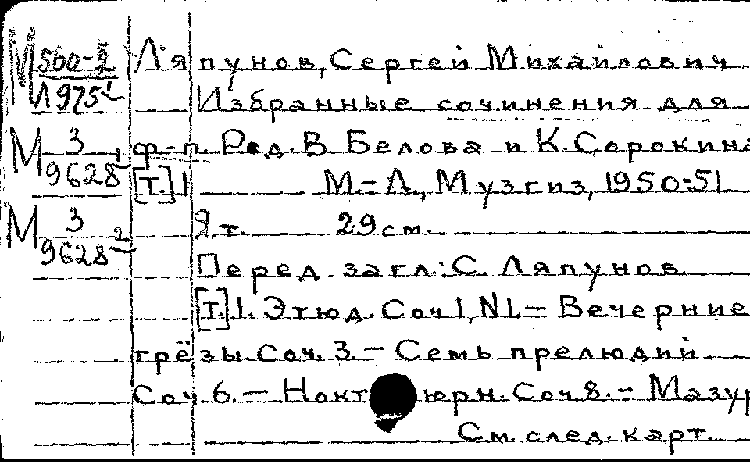 М 560-2 Ляпунов, Сергей Михайлович
Л 975 Избранные сочинения для
М 3 ф-п. Ред. В. Белова и К. Сорокина
9628 [т.] 1 М-Л., Музгиз, 1950-51
М 3 2 т. 29 см.
9628 2
Перед загл.: С. Ляпунов
[т.] 1. Этюд. Соч 1, N1.- Вечерние
грёзы. Соч. 3. - Семь прелюдий
Соч 6. - Ноктюрн. Соч 8. - Мазур
См. след. карт.